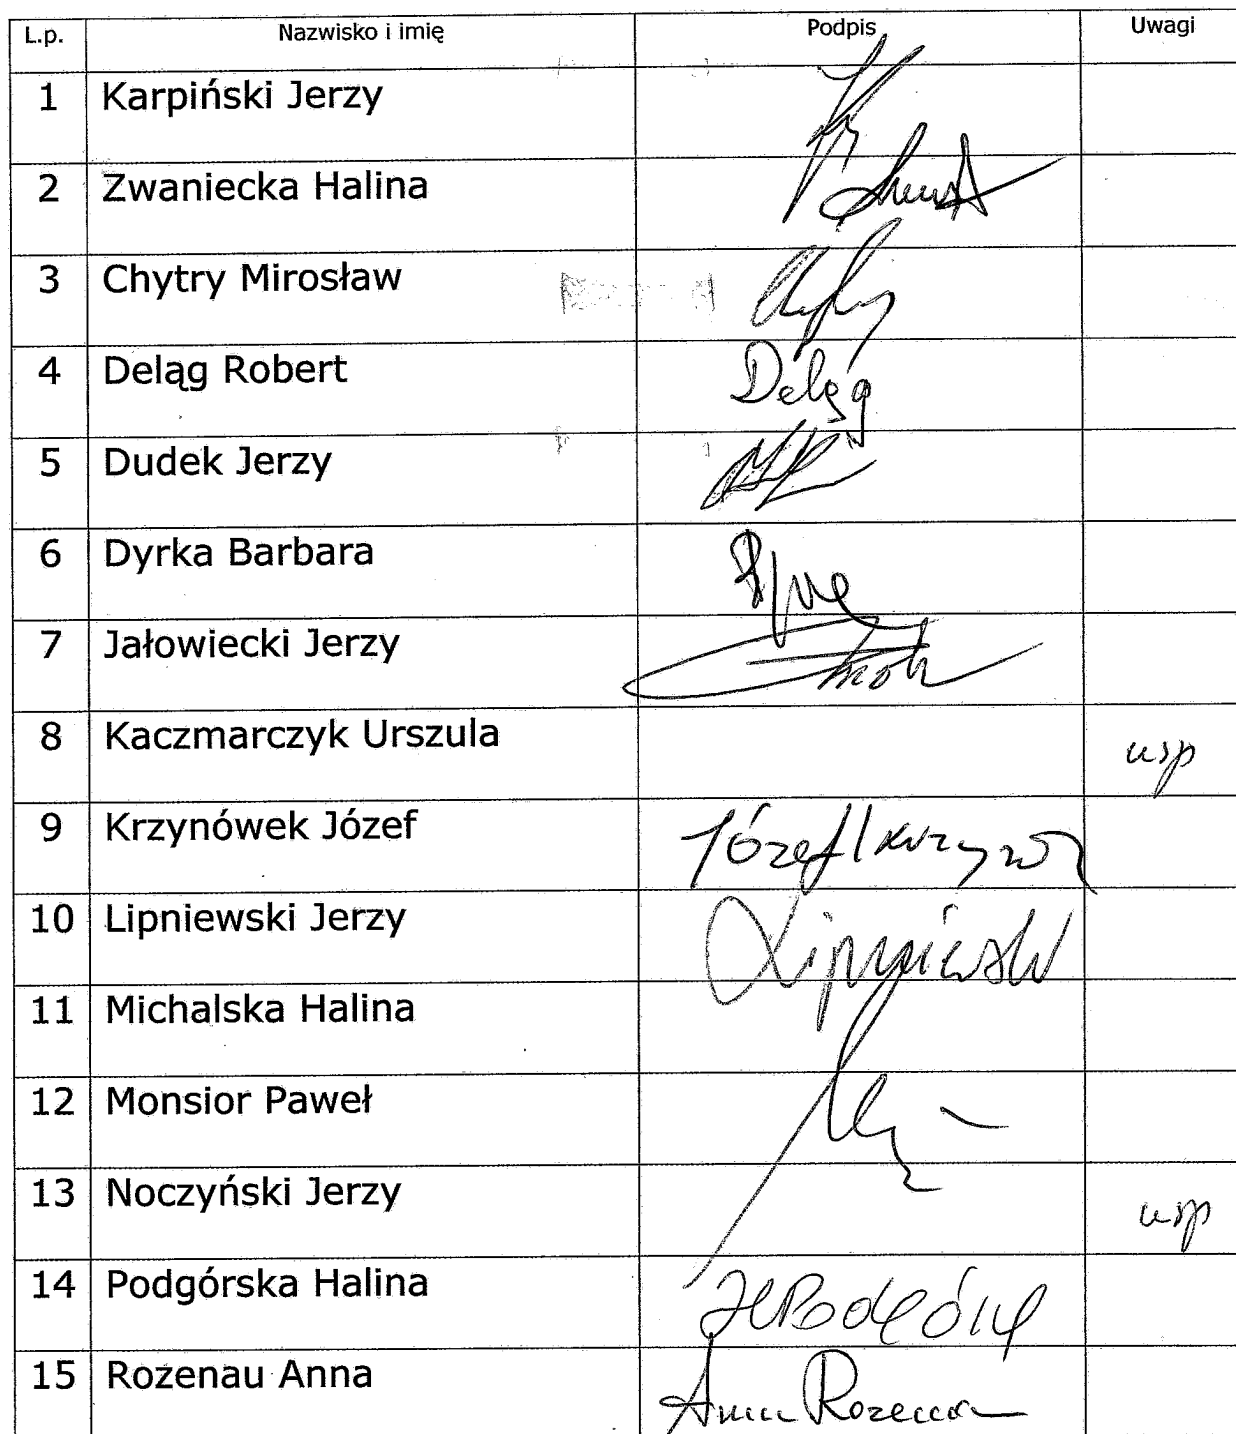 L.p. Nazwisko i imię Podpis Uwagi
1 Karpiński Jerzy
2 Zwaniecka Halina
3 Chytry Mirosław
4 Deląg Robert Deląg
5 Dudek Jerzy
6 Dyrka Barbara
7 Jałowiecki Jerzy
8 Kaczmarczyk Urszula usp
9 Krzynówek Józef Józef
10 Lipniewski Jerzy
11 Michalska Halina
12 Monsior Paweł
13 Noczyński Jerzy usp
14 Podgórska Halina
15 Rozenau Anna Anna